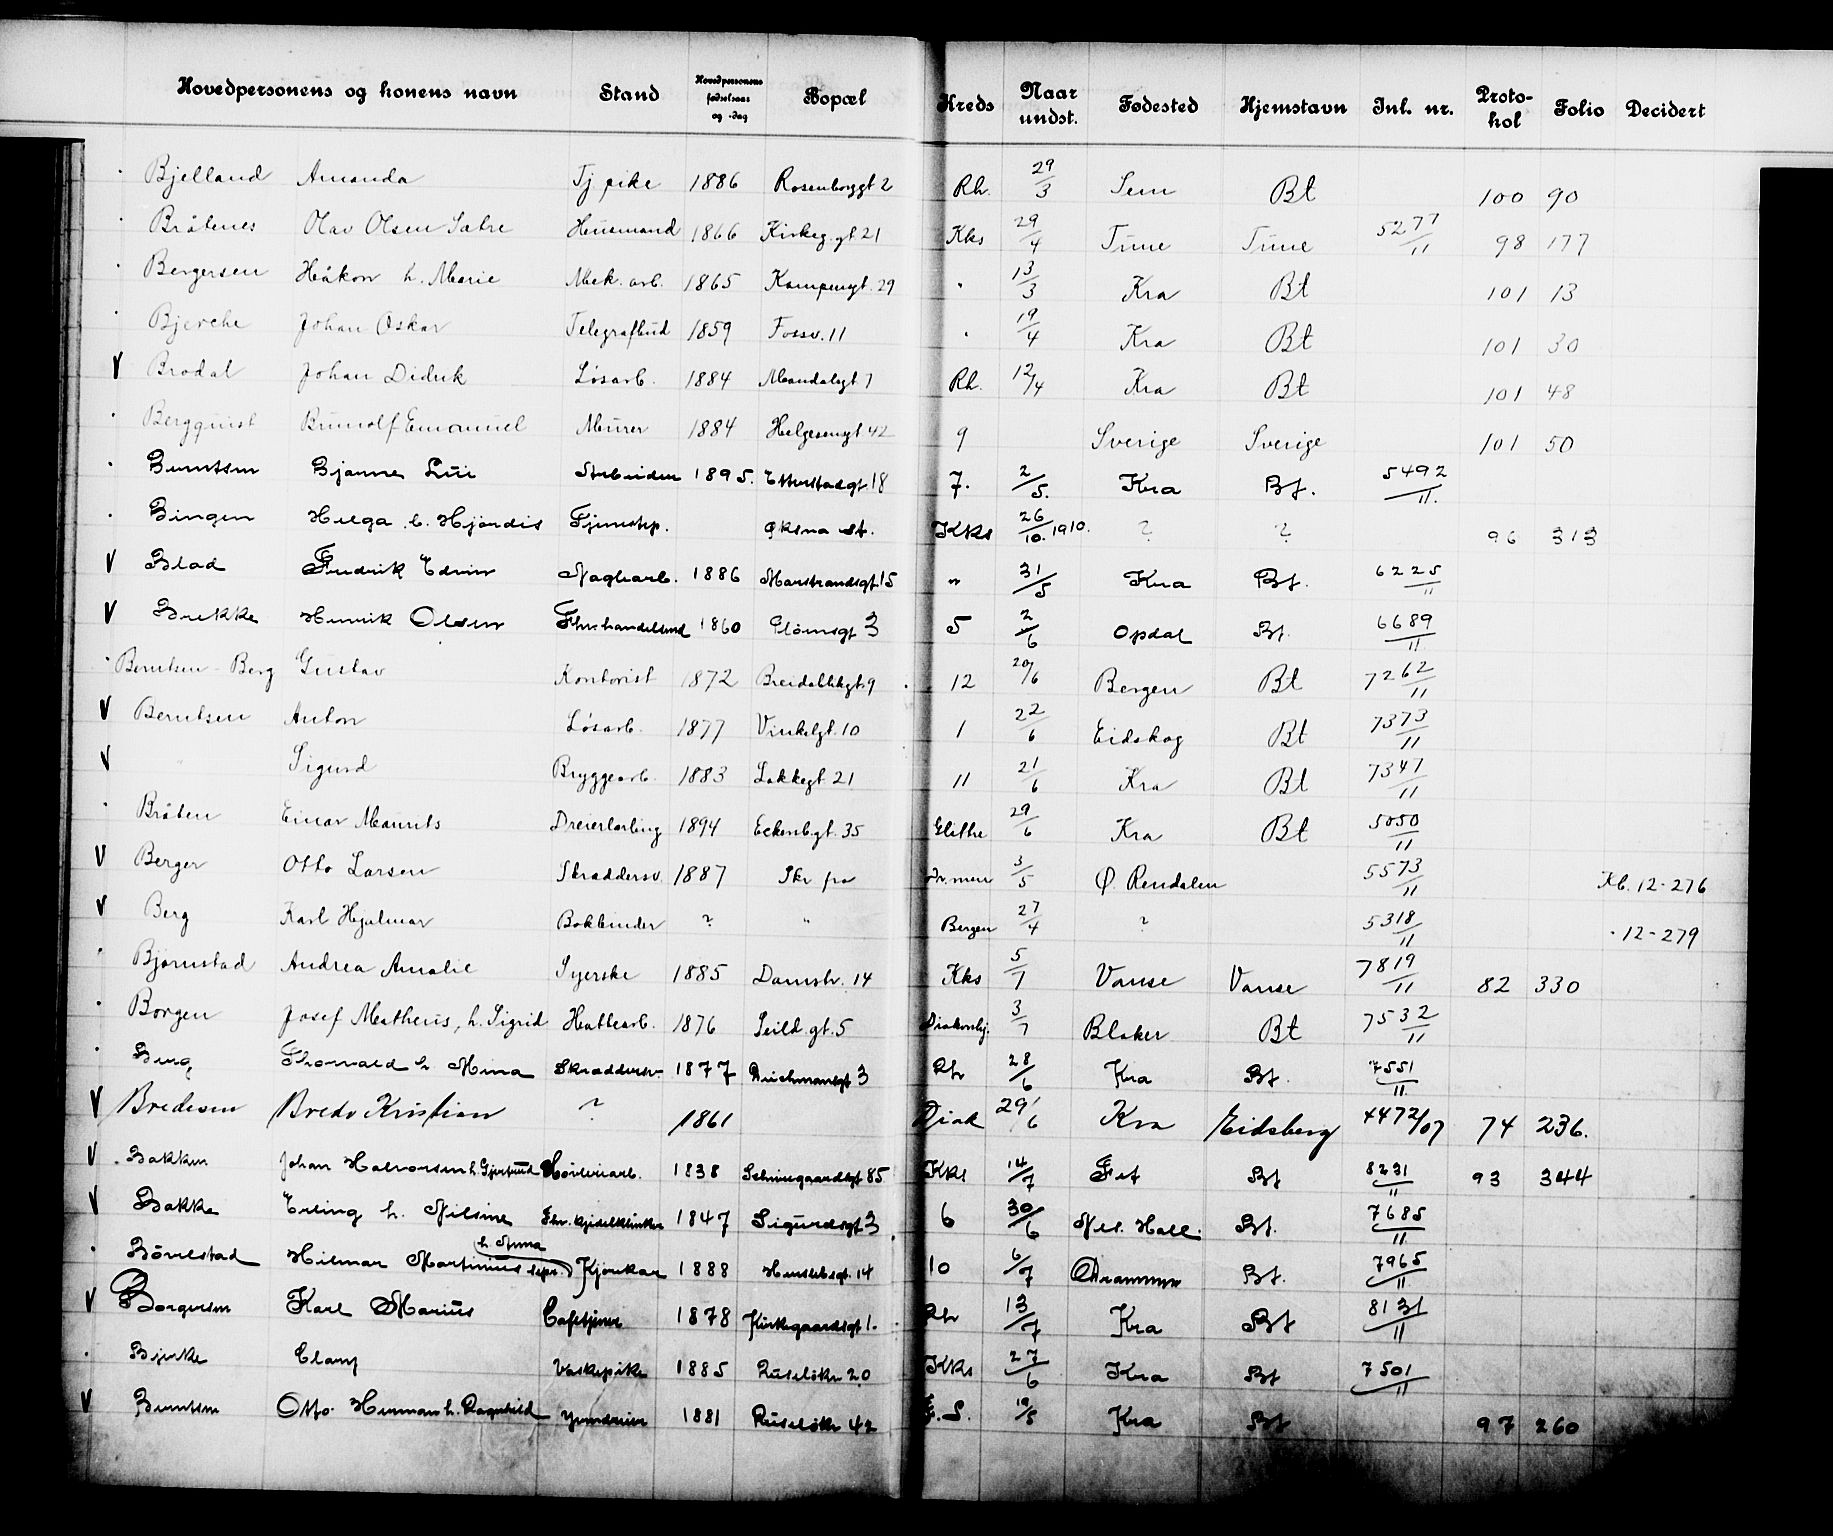 Hovedpersonens og konens navn Stand Hovedpersonens fødselsaar og -dag Bopæl Kreds Naar undst. Fødested Hjemstavn Inl. nr. Protokol Folio Decidert
Bjelland Amanda Tj pike 1886 Rosenborggt 2 Rh. 29/3 Sem Bt 100 90
Bråtenes Olav Olsen Sætre Husmand 1866 Kirkeg.gt 21 Kks 29/4 Tune Tune 5277/11 98 177
Bergersen Håkon h. Marie Mek. arb. 1865 Kampengt. 29 " 13/3 Kra Bt 101 13
Bjerche Johan Oskar Telegrafbud 1859 Fossv. 11 " 19/4 Kra Bt 101 30
V Brodal Johan Didrik Løsarb. 1884 Mandalsgt 7 Rh. 12/4 Kra Bt 101 48
Bergquist Brunolf Emanuel Murer 1884 Helgesensgt 42 9 Sverige Sverige 101 50
Berntsen Bjarne Lui 1895. Etterstadgt 18 7. 2/5. Kra Bt. 5492/11.
Bingen Helga b. Hjørdis Tjenestep. Øksna st. Kks 26/10. 1910. ? ? 96 313
V Blad Fredrik Edvin Naglearb. 1886 Marstrandsgt. 15 " 31/5 Kra Bt. 6225/11
V Brekke Henrik Olsen Fhv. handelsmd 1860 Glømsgt 3 5 2/6 Opdal Bt. 6689/11
Berntsen-Berg Gustav Kontorist 1872 Breidablikgt. 9 12 20/6 Bergen Bt 7262/11
V Berntsen Anton Løsarb. 1877 Vinkelgt. 10 1 22/6 Eidskog Bt 7373/11
V " Sigurd Bryggearb. 1883 Lakkegt. 21 11 21/6 Kra Bt 7347/11
Bråten Einar Maurits Dreierlærling 1894 Eckersb.gt. 35 Glittre 29/6 Kra Bt 5050/11
V Berger Otto Larsen Skræddersv. 1887 Skr fra Dr.men 3/5 Ø. Rendalen 5573/11 Kb. 12-276
V Berg Karl Hjalmar Bokbinder ? " Bergen 27/4 ? 5318/11 " 12-279
Bjørnstad Andrea Amalie Syerske 1885 Damstr. 14 Kks 5/7 Vanse Vanse 7819/11 82 330
Borgen Josef Matheus, h. Sigrid Hattearb. 1876 Seild.gt. 5 Diakonhj. 3/7 Blaker Bt 7532/11
Berg Thorvald h. Mina Skræddersv. 1877 Deichmansgt 3 Rh 28/6 Kra Bt. 7551/11
V Bredesen Bredo Kristian ? 1861 Diak 29/6 Kra Eidsberg 4472/07 74 236.
V Bakken Johan Halvorsen h. Gjertrud 1838 Schweigaardsgt 85 Kks 14/7 Fet Bt 8231/11 93 344
V Bakke Erling h. Nilsine Fhv. kjedelklinker 1847 Sigurdsgt 3 6 30/6 Bt. 7685/11
Börrestad Hilmar Martinius h. Anna sepr. Kjørekar 1888 Herslebsgt. 14 10 6/7 Drammen Bt. 7965/11
V Borgersen Karl Marius Cafetjener 1878 Kirkegaardsgt 1. Rh 13/7 Kra Bt 8131/11
Bjerke Clary Vaskepike 1885 Ruseløkv 20 Kks 27/6 Kra Bt 7501/11
V Berntsen Otto Herman h. Ragnhild 1881 Ruseløkv 42 F. S. Kra Bt 97 260